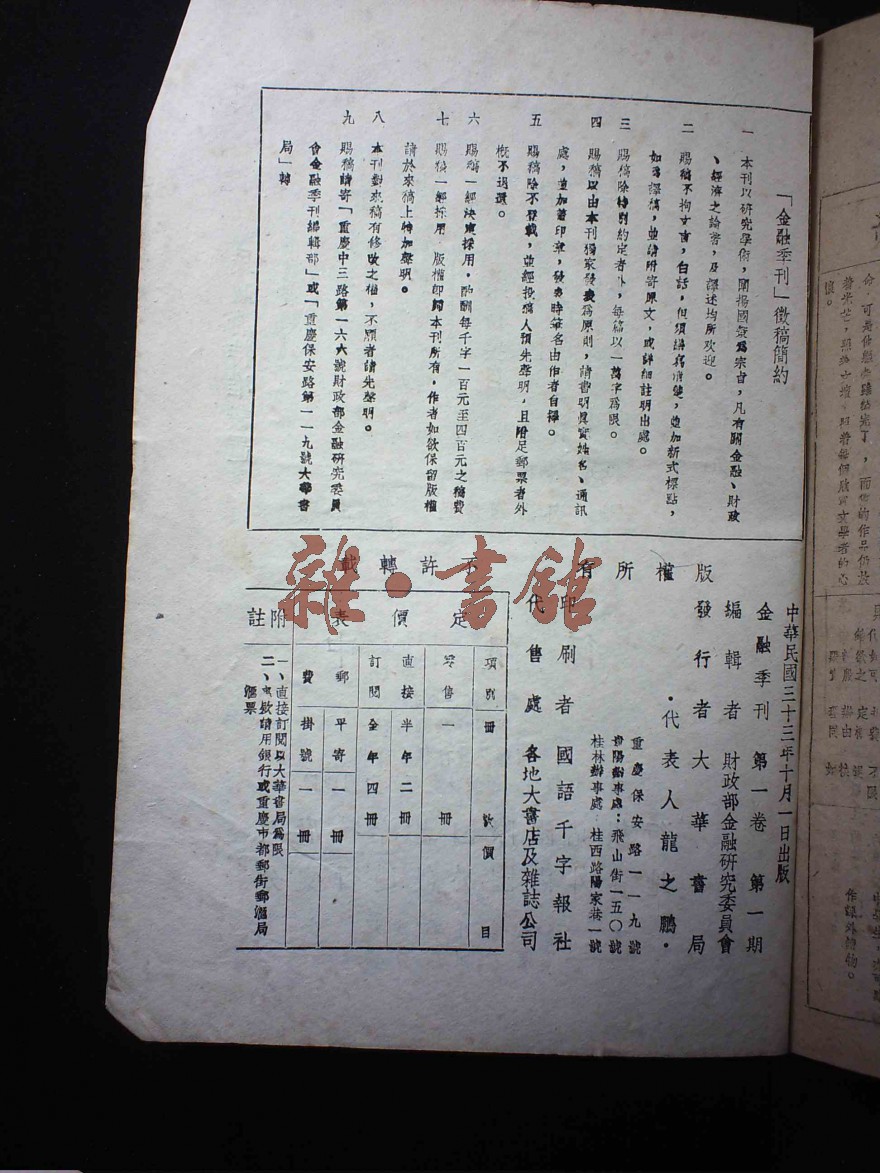 「金融季刊」徵稿簡約
一　本刊以研究學術，闡揚國策為宗旨，凡有關金融、財政
、經濟之論著，及譯述均所欢迎。
二　賜稿不拘文言，白話，但須繕寫清楚，並加新式標點，
如為譯稿，並請附寄原文，或詳細註明出處。
三　賜稿除特別約定者外，每篇以一萬字為限。
四　賜稿以由本刊獨家發表為原則，請書明眞實姓名、通訊
處，並加蓋印章，發表時筆名由作者自擇。
五　賜稿除不登載，並經投稿人預先聲明，且附足郵票者外
概不退還。
六　賜稿一經決定採用，酌酬每千字一百元至四百元之稿費
七　賜稿一經採用　版權卽歸本刊所有，作者如欲保留版權
請於來稿上特加聲明。
八　本刊對來稿有修改之權，不願者請先聲明。
九　賜稿請寄「重慶中三路第一六六號財政部金融研究委員
會金融季刊編輯部」或「重慶保安路第一一九號大華書
局」轉
中華民國三十三年十月一日出版
金融季刊　第一卷　第一期
編輯者　財政部金融研究委員會
發行者　大華書局
・代表人龍之鵬・
重慶保安路一一九號
貴陽辦事處：飛山街一五〇號
桂林辦事處　桂西路陽家巷一號
印刷者　國語千字報社
代售處　各地大書店及雜誌公司
版權所有
不許轉載
定價表
項別　冊數　價目
零售　一冊
直接訂閱　半年二冊
全年四冊
郵費　平寄一冊
掛號一冊
附註
一、直接訂閱以大華書局為限
二、請用銀行或重慶市都郵街郵滙局
滙票
雜・書館